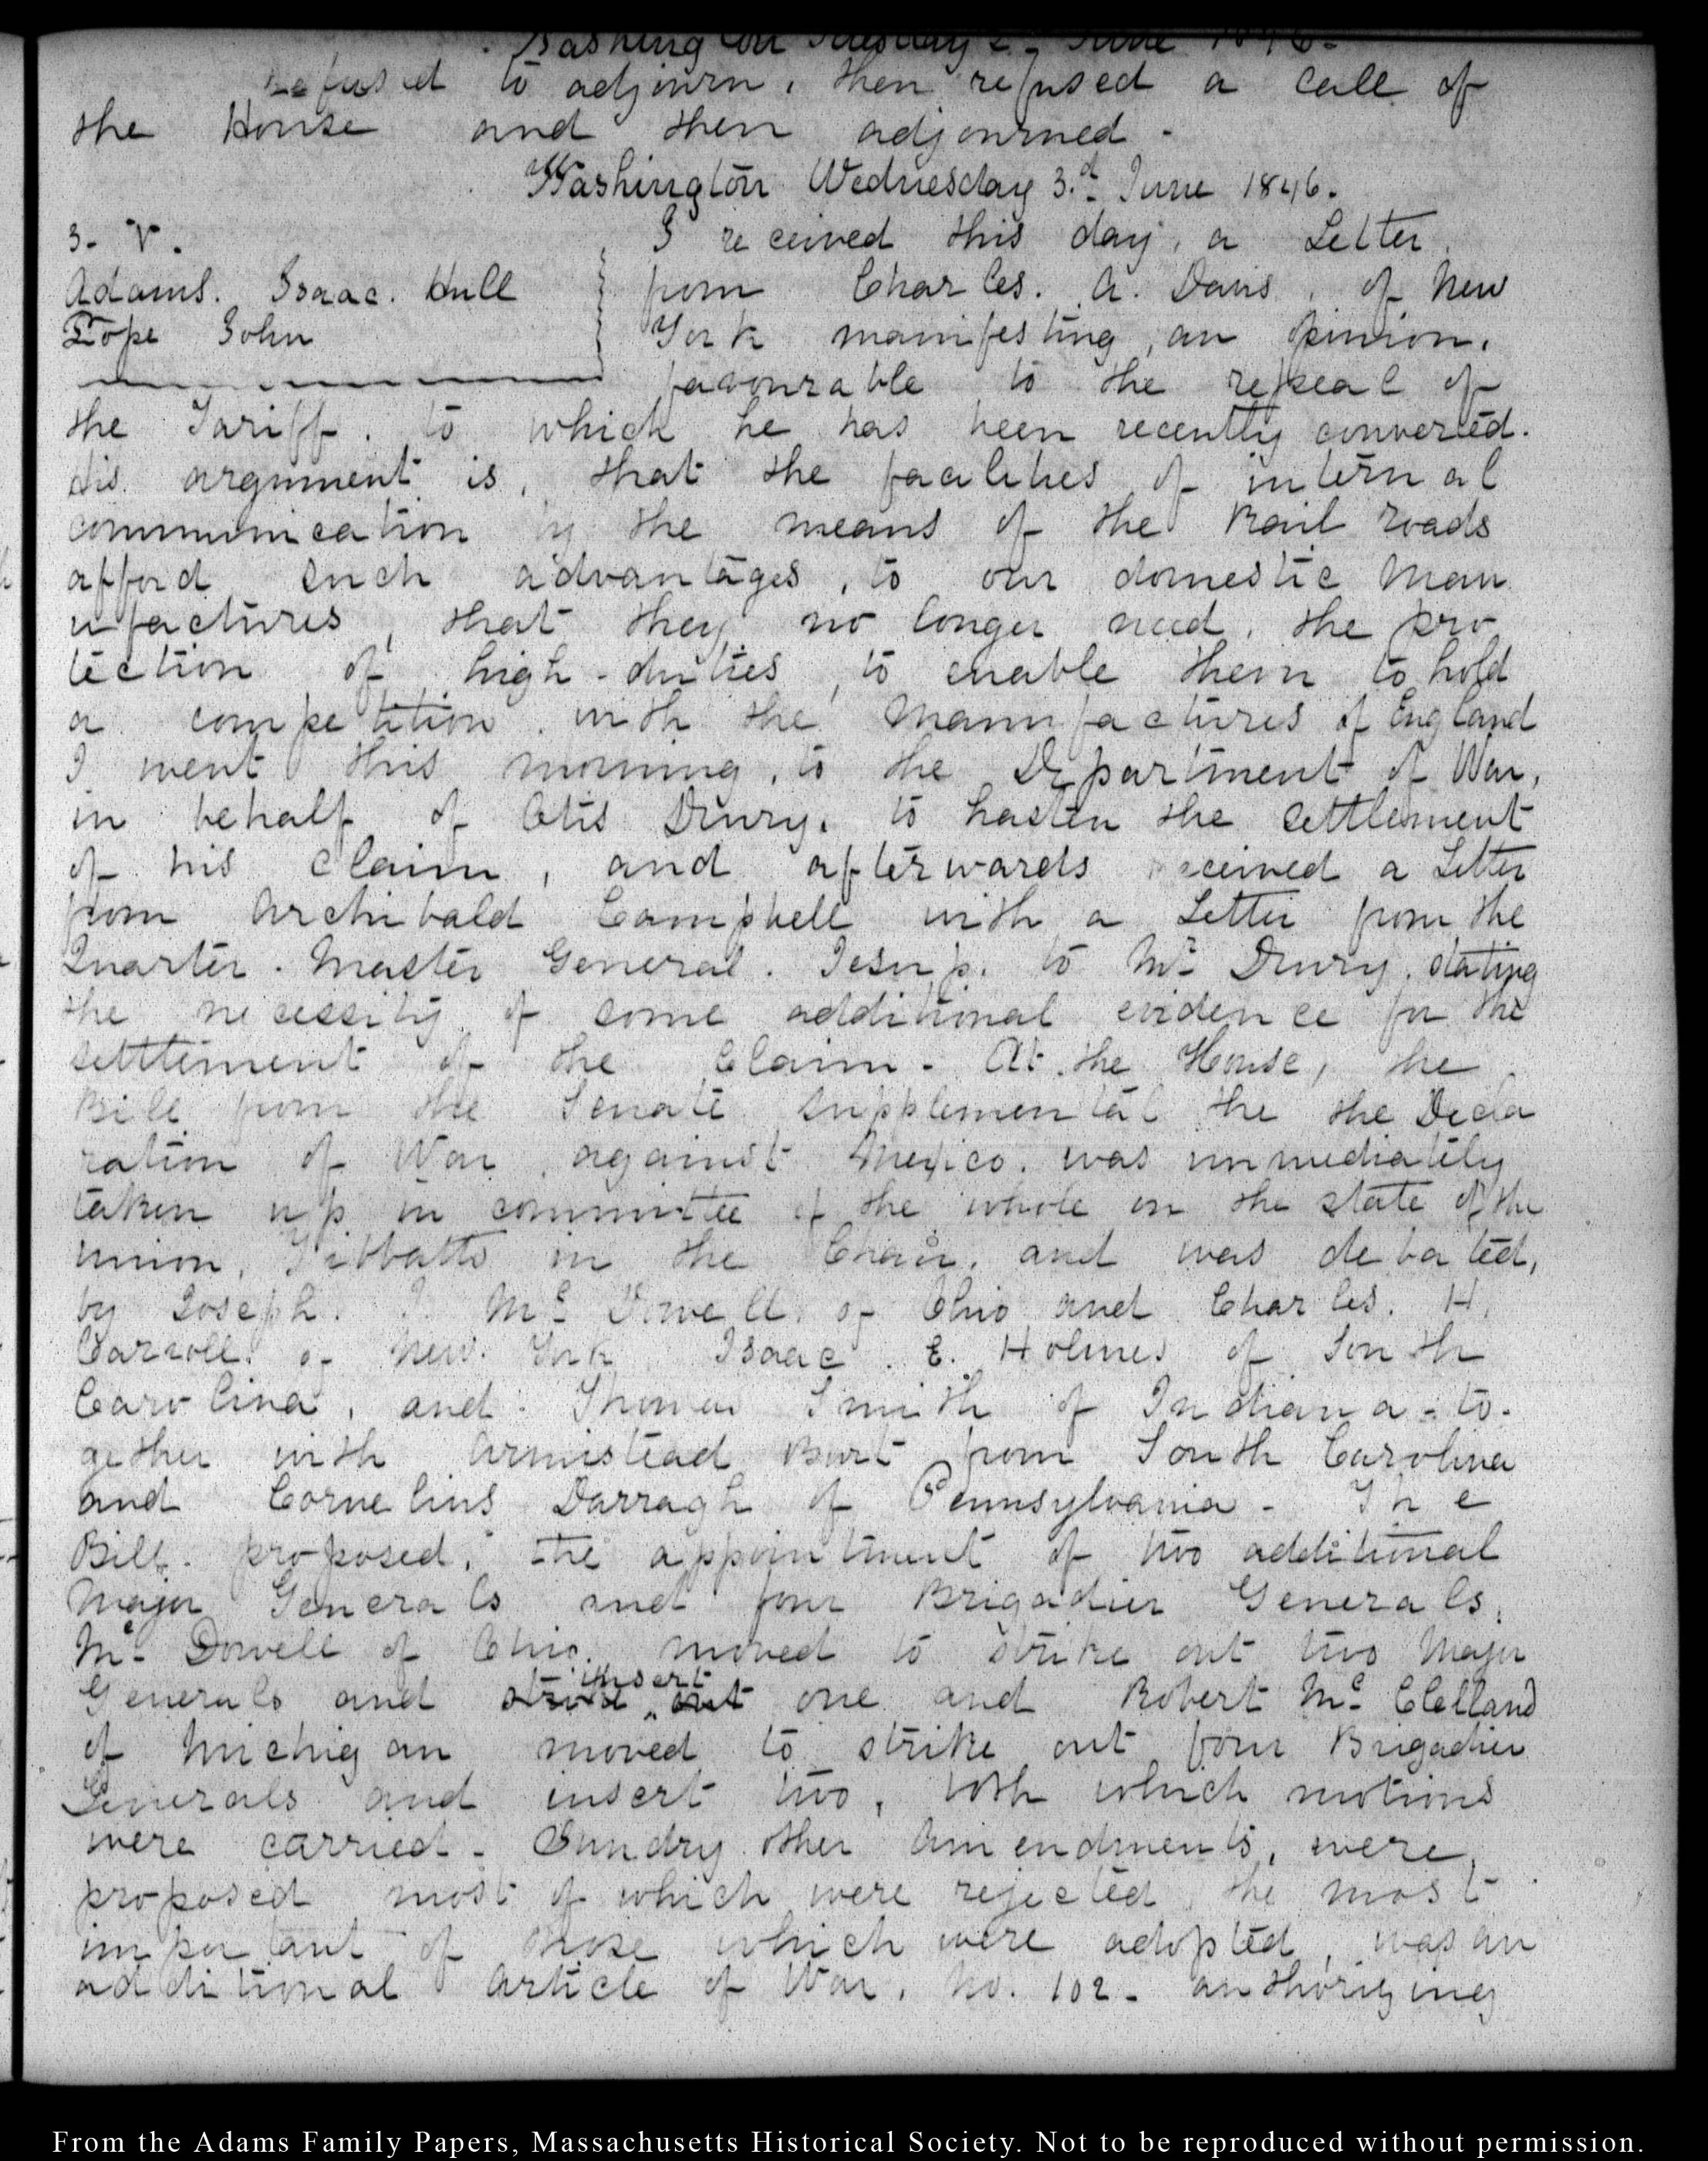 Washington Tuesday 2. June 1846.
refused to adjourn, then refused a call of
the House and then adjourned.
Washington Wednesday 3.d June 1846.
3. V. I received this day, a Letter
Adams. Isaac. Hull from Charles. A. Davis, of New
Tope John York manifesting, an opinion,
favourable to the repeal of
the Tariff. to which he has been recently converted.
His argument is, that the facilities of internal
communication by the means of the Rail roads
afford such advantages, to our domestic Man
ufactures, that they no longer need, the pro
tection of high-duties, to enable them to hold
a competition with the Manufactures of England
I went this morning, to the Department of War,
in behalf of Otis Drury, to hasten the settlement
of his claim, and afterwards received a Letter
from Archibald Campbell with a Letter from the
Quarter. Master General. Jesup. to Mr Drury, stating
the necessity of some additional evidence for the
settlement of the Claim. At the House, the
Bill from the Senate supplemental the the Decla
ration of War against Mexico, was immediately
taken up in committee of the whole on the state of the
Union, Tibbatts in the Chair, and was debated,
by Joseph. J. Mc Dowell, of Ohio and Charles. H.
Carroll. of New. York Isaac. E. Holmes of South
Carolina, and Thomas Smith of Indiana - to-
gether with Armistead Burt from South Carolina
and Cornelius Darragh of Pennsylvania. The
Bill. proposed, the appointment of two additional
Major Generals and four Brigadier Generals,
Mc Dowell of Ohio, moved to strike out two Major
Generals and strike out insert one and Robert Mc Clelland
of Michigan moved to strike out four Brigadier
Generals and insert two, both which motions
were carried. Sundry other Amendments, were
proposed most of which were rejected, the most
important of those which were adopted, was an
additional Article of War, No. 102. authorizing
From the Adams Family Papers, Massachusetts Historical Society. Not to be reproduced without permission.